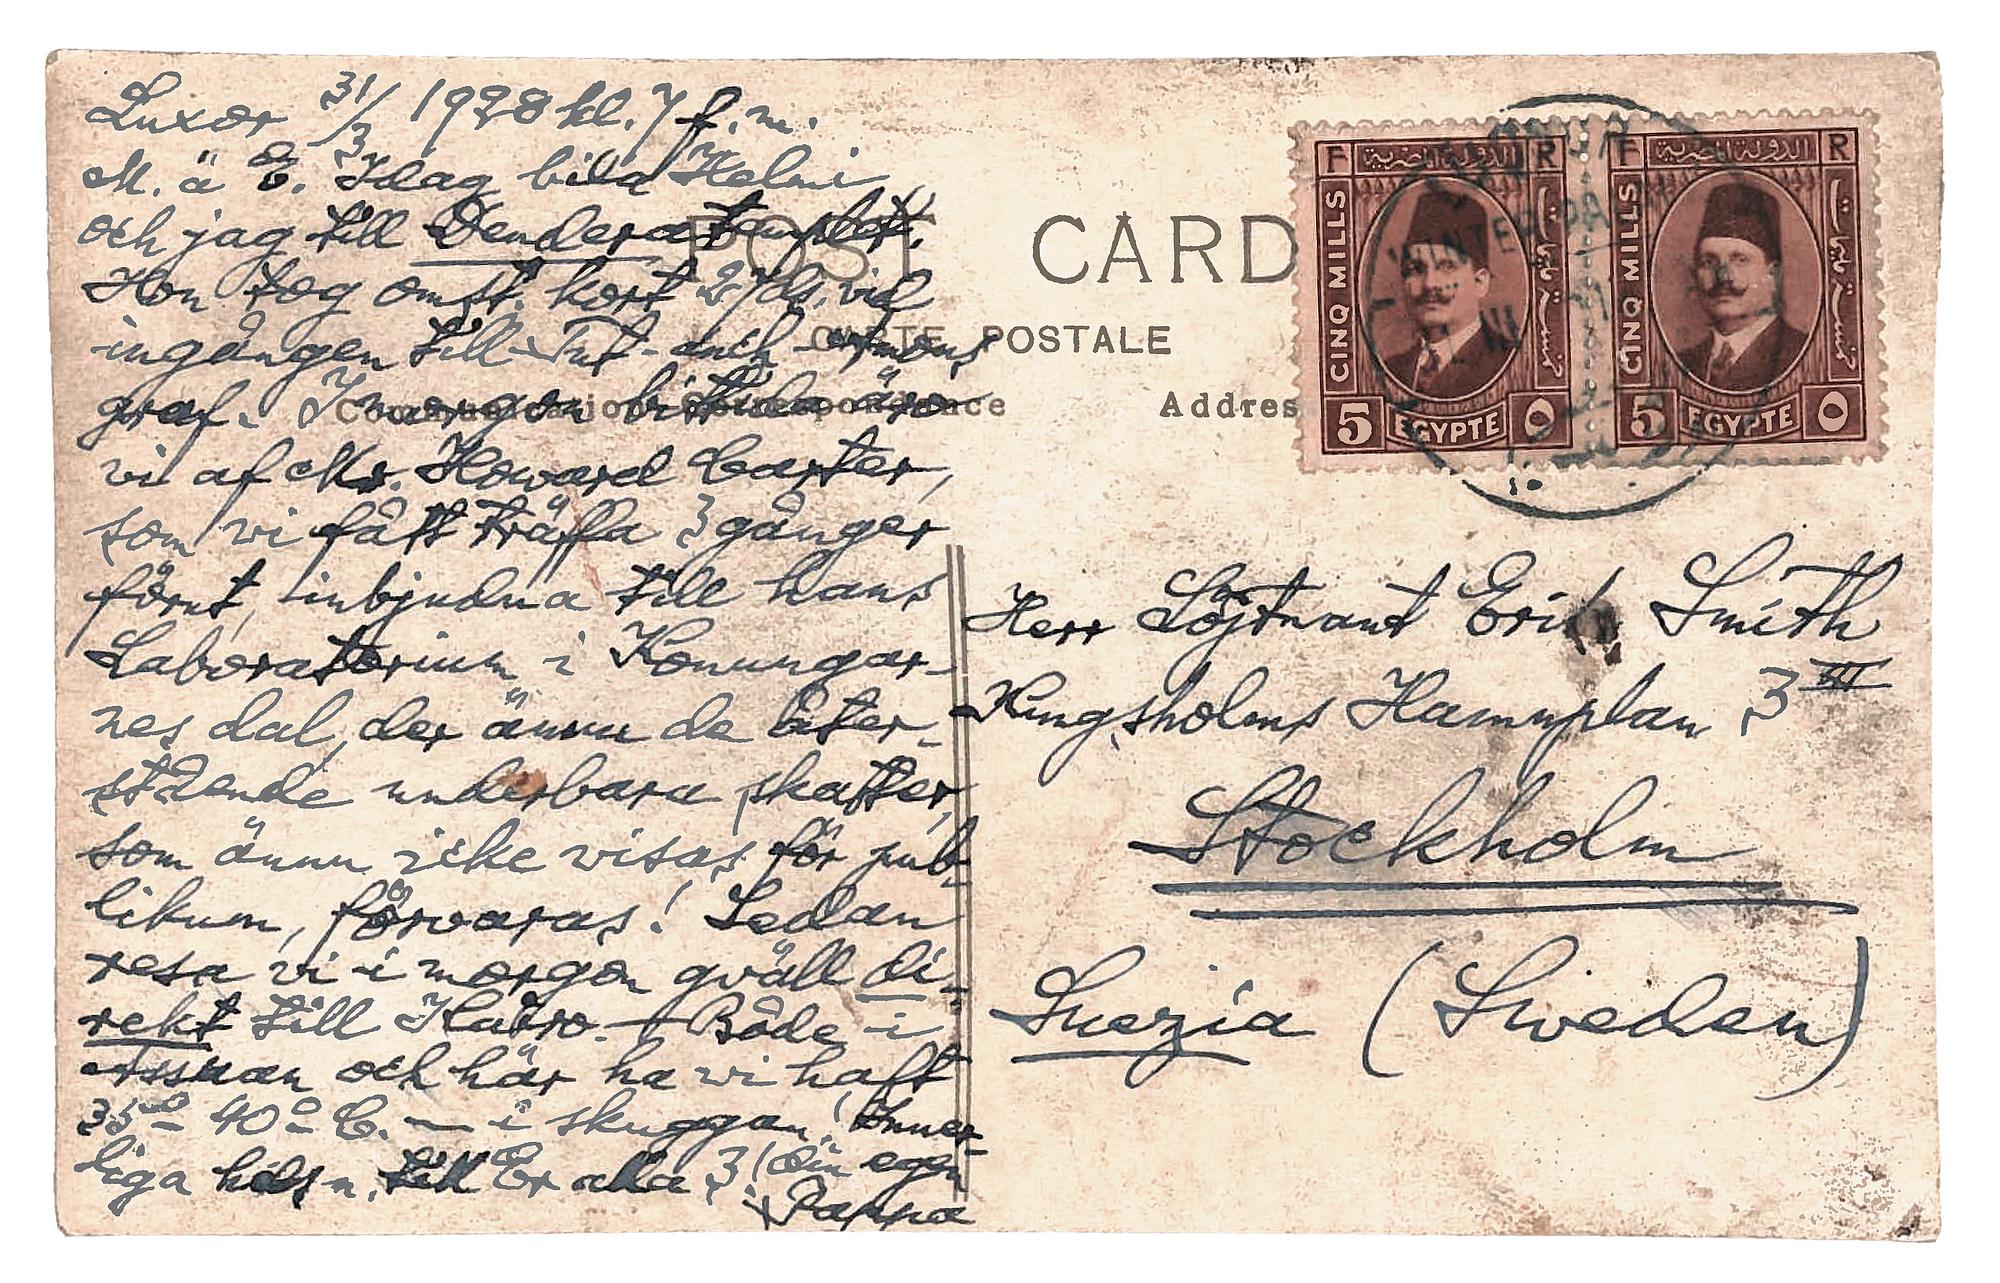 Luxor 31/3 1928 kl. 7 f.m.
M. ä E. Idag bila Helmi
och jag till Denderatemplet.
Hon tog omst. kort 27ds. vid
ingången till Tut-anch-amons
graf. I morgon bittida äro
vi af Mr. Howard Carter,
som vi fått träffa 3 gånger
förut, inbjudna till hans
Laboratorium i Konungar-
nes dal, der ännu de åter-
stående underbara skatter,
som ännu icke visas för pub-
likum, förvaras! Sedan
resa vi i morgon qväll di-
rekt till Kairo. — Både i
Assuan och här ha vi haft
35° 40° C. — i skuggan! Inner-
liga hälsn. till Er alla 3! Din egen
Pappa
POST CARD
CARTE POSTALE
Communication Correspondence
Addres
F R
الدولة المصرية
CINQ MILLS
خمسة مليمات
5 EGYPTE ٥
F R
الدولة المصرية
CINQ MILLS
خمسة مليمات
5 EGYPTE ٥
Herr Löjtnant Erik Smith
Kungsholms Hamnplan 3 III
Stockholm
Suezia (Sweden)